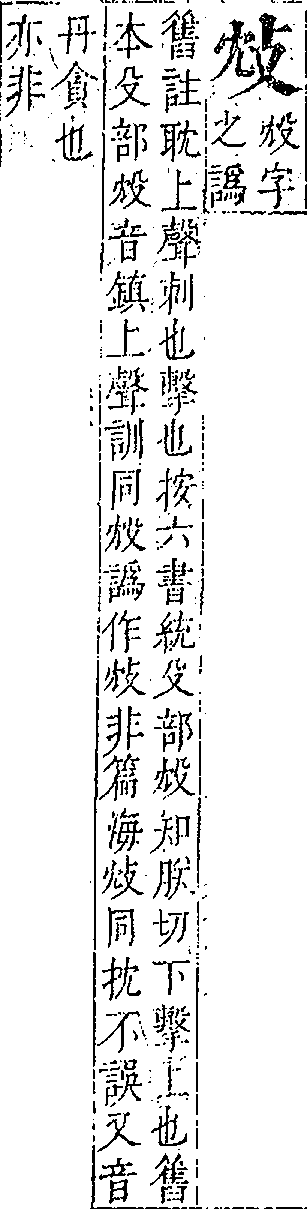 㱽字
之譌
舊註耽上聲刺也擊也按六書統殳部㱽知朕切下擊上也舊
本殳部㱽音鎮上聲訓同㱽譌作非篇海同抌不誤又音
丹貪也
亦非